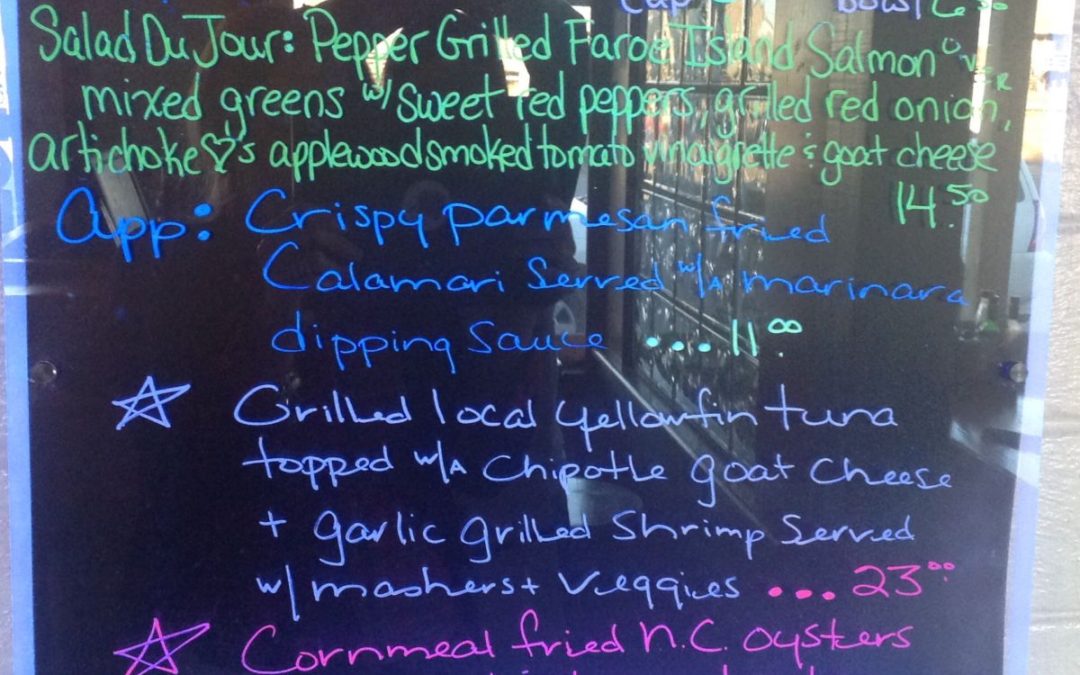 Cup Bowl 6.50
Salad Du Jour: Pepper Grilled Faroe Island Salmon over
mixed greens w/ sweet red peppers, grilled red onion,
artichoke ♡'s applewood smoked tomato vinaigrette & goat cheese
14.50
App: Crispy parmesan fried
Calamari Served w/a marinara
dipping Sauce ... 11.00
☆ Grilled local yellowfin tuna
topped w/a Chipotle goat Cheese
+ garlic grilled Shrimp Served
w/ mashers + Veggies ... 23.00
☆ Cornmeal fried N.C. oysters